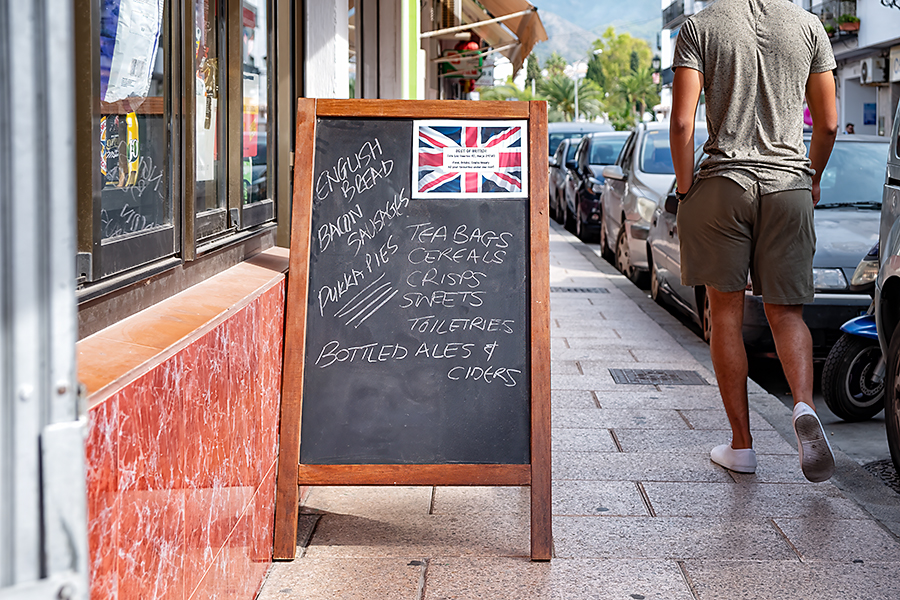 BEST OF BRITISH
ENGLISH
BREAD
BACON
SAUSAGES
PUKKA PIES
TEA BAGS
CEREALS
CRISPS
SWEETS
TOILETRIES
BOTTLED ALES &
CIDERS